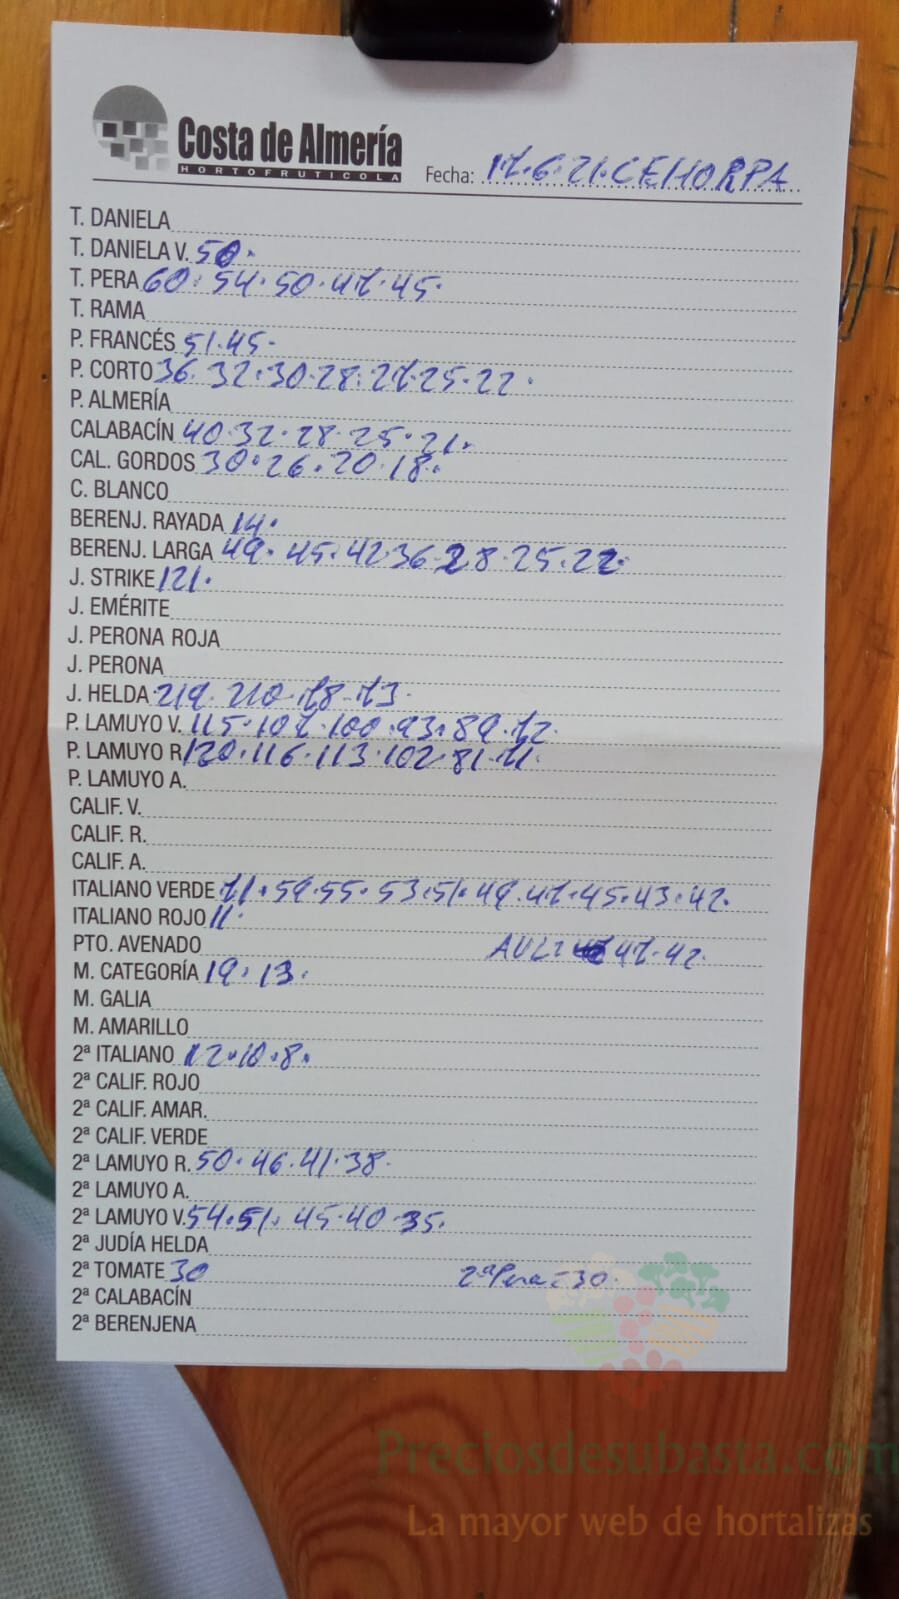 Costa de Almería
HORTOFRUTICOLA
Fecha: 17.6.21.CEHORPA
T. DANIELA
T. DANIELA V. 50.
T. PERA 60. 54. 50. 47. 45.
T. RAMA
P. FRANCÉS 51.45.
P. CORTO 36. 32. 30. 28. 27. 25. 22.
P. ALMERÍA
CALABACÍN 40. 32. 28. 25. 21.
CAL. GORDOS 30. 26. 20. 18.
C. BLANCO
BERENJ. RAYADA 14.
BERENJ. LARGA 49. 45. 42. 36. 28. 25. 22.
J. STRIKE 121.
J. EMÉRITE
J. PERONA ROJA
J. PERONA
J. HELDA 219. 210. 78. 73.
P. LAMUYO V. 115. 107. 100. 93. 89. 72.
P. LAMUYO R 120. 116. 113. 102. 81. 71.
P. LAMUYO A.
CALIF. V.
CALIF. R.
CALIF. A.
ITALIANO VERDE 71. 59. 55. 53. 51. 49. 47. 45. 43. 42.
ITALIANO ROJO 11.
PTO. AVENADO AVLI 47. 42.
M. CATEGORÍA 19. 13.
M. GALIA
M. AMARILLO
2ª ITALIANO 12. 10. 8.
2ª CALIF. ROJO
2ª CALIF. AMAR.
2ª CALIF. VERDE
2ª LAMUYO R. 50. 46. 41. 38.
2ª LAMUYO A.
2ª LAMUYO V. 54. 51. 45. 40. 35.
2ª JUDÍA HELDA
2ª TOMATE 30 2ª Pera = 30.
2ª CALABACÍN
2ª BERENJENA
Preciosdesubasta.com
La mayor web de hortalizas